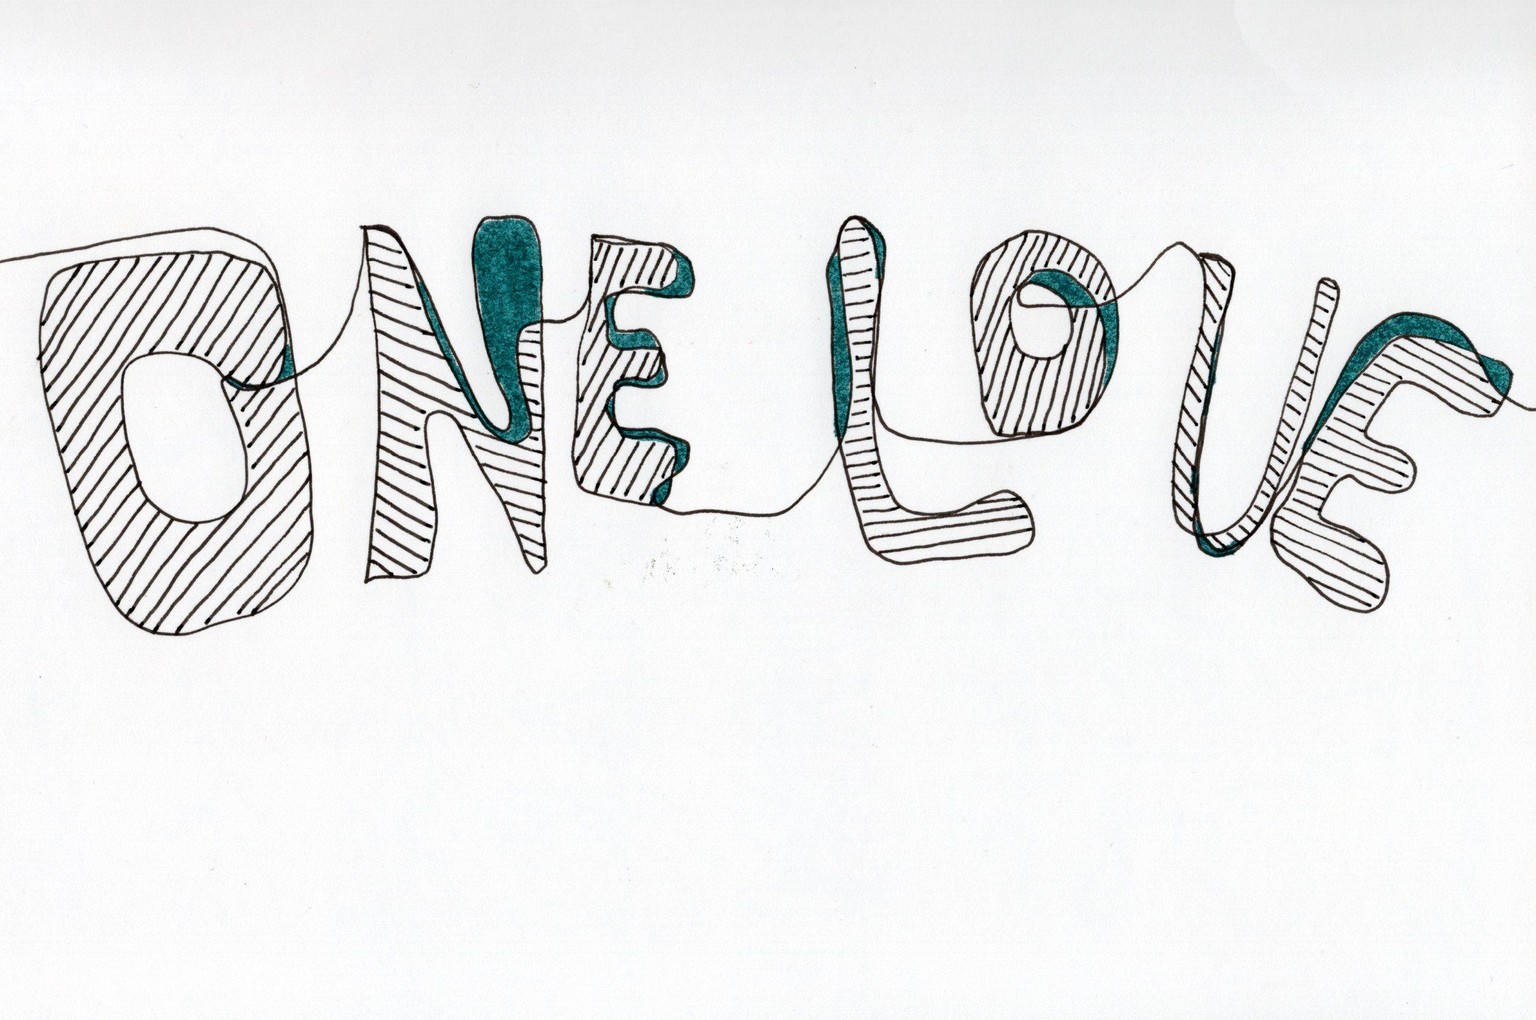 ONE LOVE